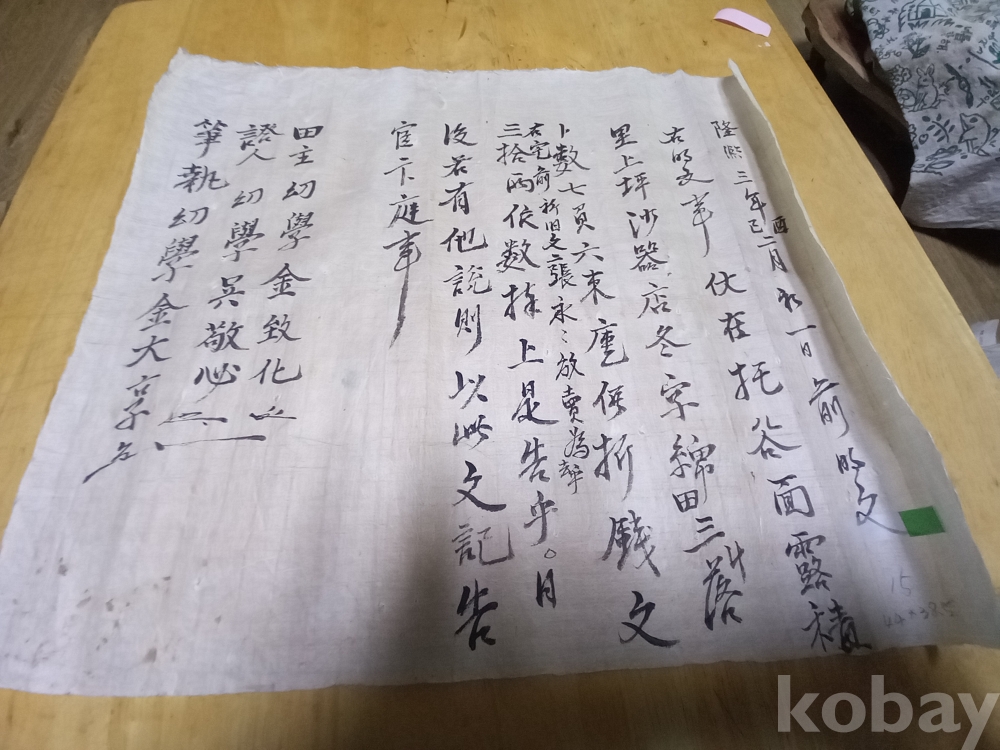 隆熙三年己酉二月初一日 前明文
右明文事伏在托谷面露積
里上坪沙器店冬字綿田三落
卜數七負六束廤價折錢文
三拾兩依數捧上是告乎
右宅前新旧文二張永永放賣為乎
後若有他說則以此文記告
官卞庭事
田主幼學金致化
證人幼學吳敬必
筆執幼學金大
15
kobay